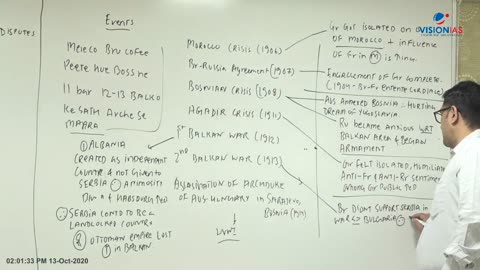 VISIONIAS
DISPUTES
Events
Meieco Bru Cofee
Peete hue Boss ne
11 bar 12-13 BALKO
Ke SATH
MAARA
① ALBANIA
CREATED AS INDEPENDENT
COUNTRY & NOT GIVEN TO
SERBIA
∴ SERBIA CONTD TO BE A
LANDLOCKED COUNTRY
② OTTOMAN EMPIRE LOST
IN BALKAN
MOROCCO CRISIS (1906)
Br-Russia Agreement (1907)
BOSNIAN CRISIS (1908)
AGADIR CRISIS (1911)
1st BALKAN WAR (1912)
2nd BALKAN WAR (1913)
ASSASSINATION OF ARCHDUKE
OF AUS HUNGARY IN SARAJEVO,
BOSNIA (1914)
WWI
Gr GOT ISOLATED ON
OF MOROCCO + INFLUENCE
OF Gr IN
ENCIRCLEMENT OF Gr COMPLETE.
(1904 - Br-Fr ENTENTE CORDIALE)
AUS ANNEXED BOSNIA ∴ HURTING
DREAM OF YUGOSLAVIA
RU BECAME ANXIOUS WRT
BALKAN AREA & BEGAN
ARMAMENT
Gr FELT ISOLATED, HUMILIATED
ANTI-Fr & ANTI-Br SENTIMENT
AMONG Gr PUBLIC
DIDNT SUPPORT SERBIA in
WAR BULGARIA
02:01:33 PM 13-Oct-2020